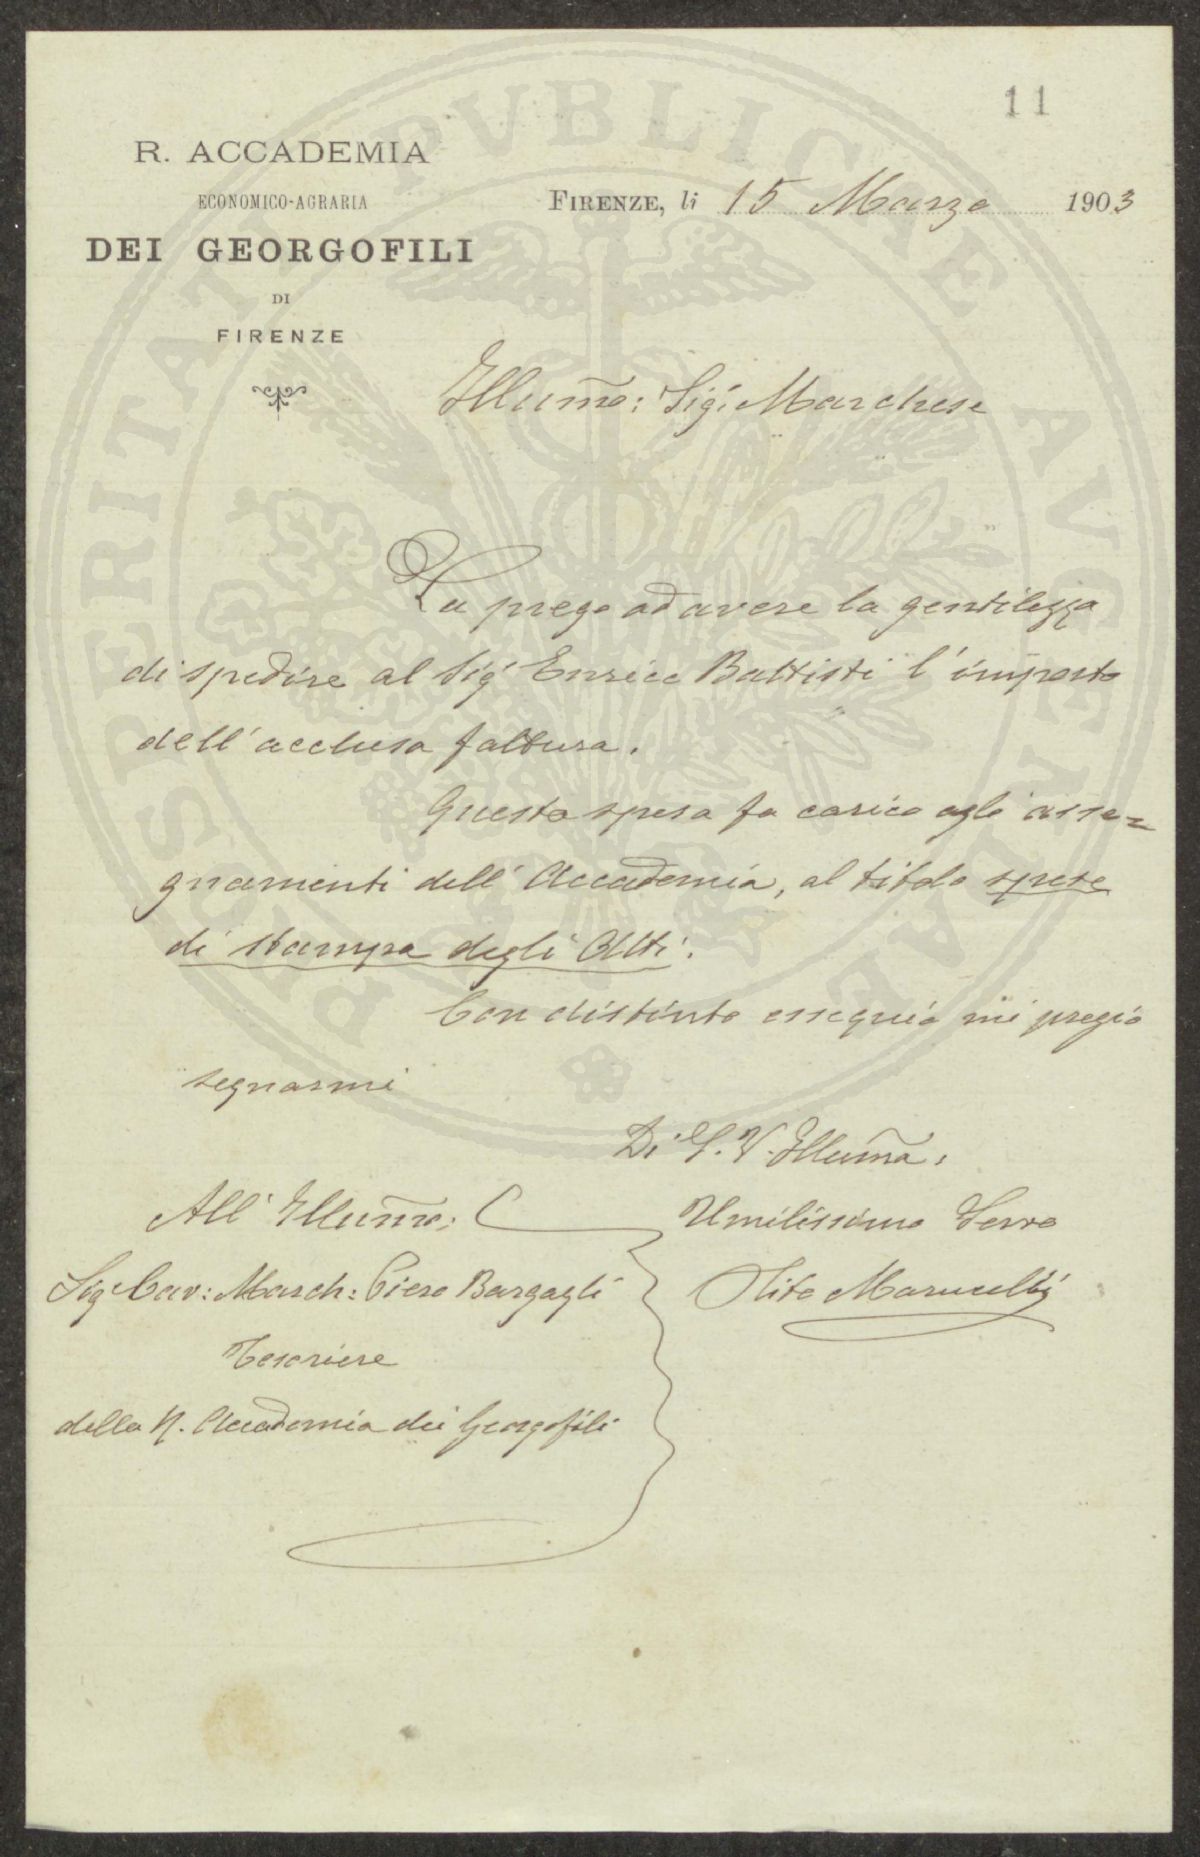 11
R. ACCADEMIA
ECONOMICO-AGRARIA
DEI GEORGOFILI
DI
FIRENZE
FIRENZE, li 15 Marzo 1903
Illum̃o: Sig: Marchese
La prego ad avere la gentilezza
di spedire al Sig Enrico Battisti l'importo
dell'acclusa fattura.
Questa spesa fa carico agli asse=
gnamenti dell'Accademia, al titolo spese
di stampa degli Atti.
Con distinto ossequio mi pregio
segnarmi
Di S. V. Illum̃a:
Umilissimo Servo
Tito Marucelli
All'Illum̃o:
Sig Cav: March: Piero Bargagli
Tesoriere
della R. Accademia dei Georgofili
PROSPERITATI PVBLICAE AVGENDAE